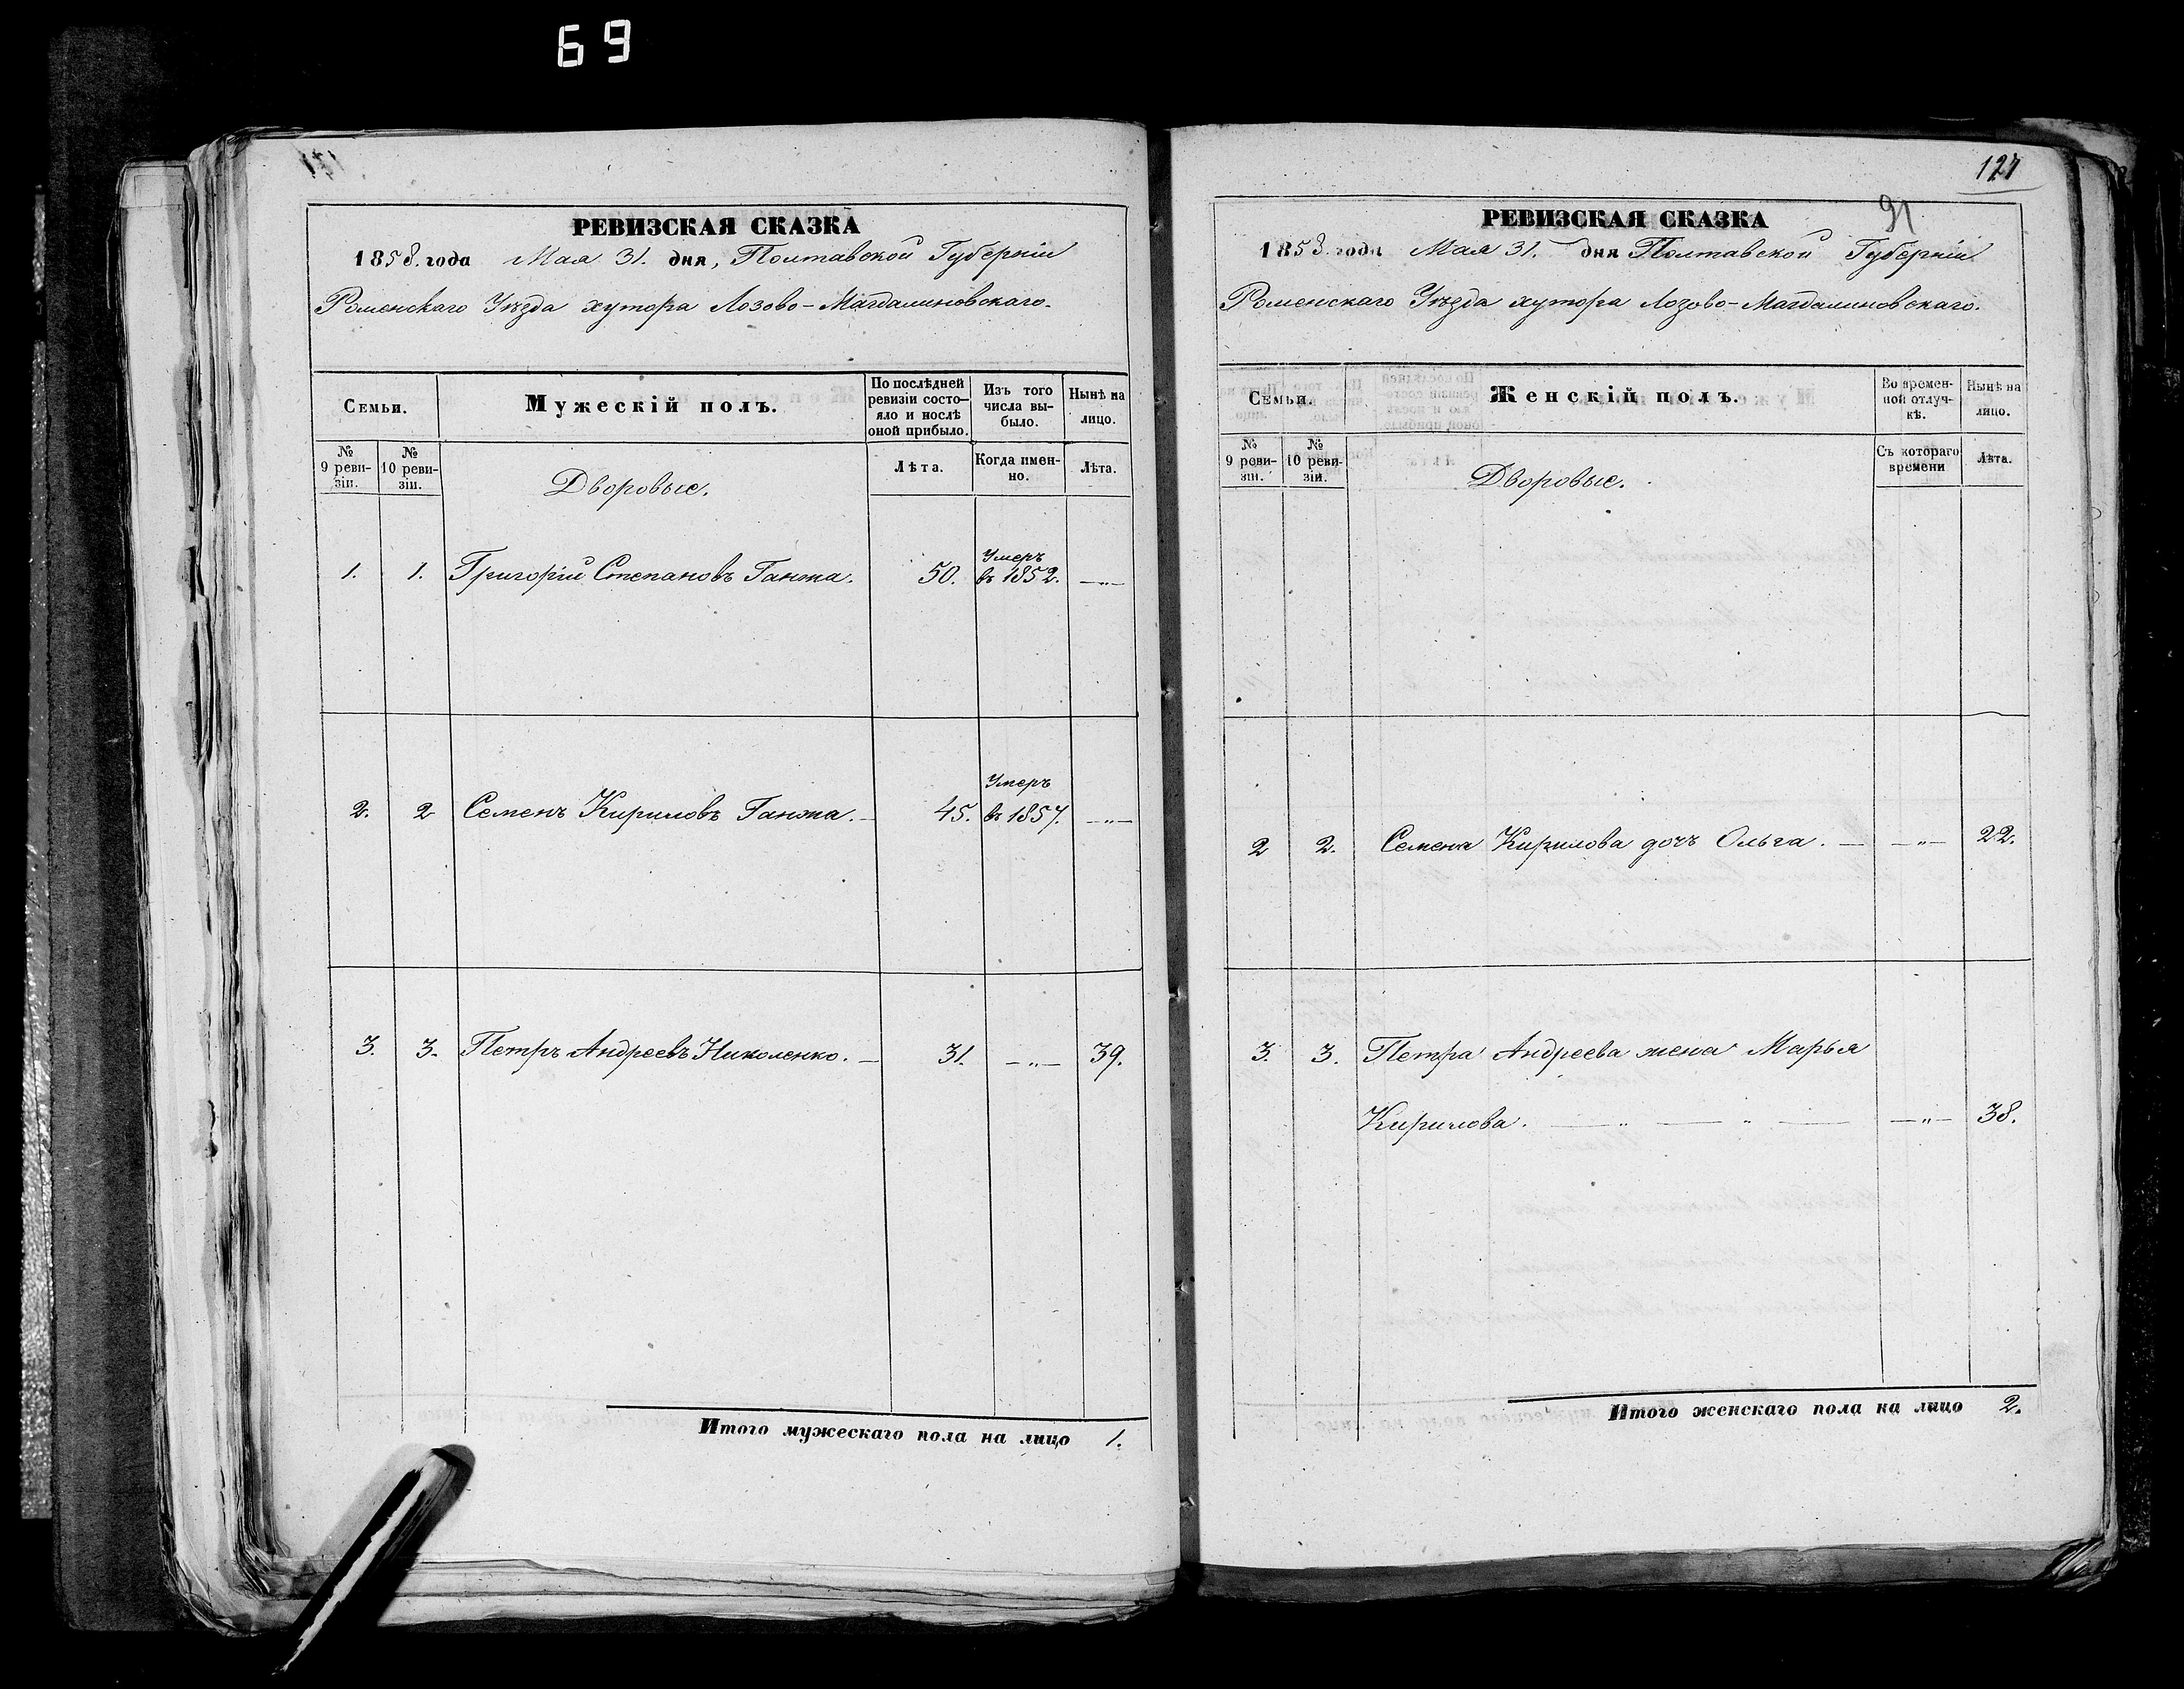 69
РЕВИЗСКАЯ СКАЗКА
1858. года Мая 31. дня, Полтавской Губерніи
Роменскаго Уѣзда хутора Лозово-Магдалиновскаго.
Семьи.
Мужескій полъ.
По послѣдней ревизіи состо-яло и послѣ оной прибыло.
Изъ того числа вы-было.
Нынѣ на лицо.
№ 9 реви-зіи.
№ 10 реви-зіи.
Дворовые.
Лѣта.
Когда имен-но.
Лѣта.
Умеръ
1. 1. Григорій Степановъ Ганжа. 50. въ 1852. —„—
Умеръ
2. 2 Семенъ Кириловъ Ганжа.— 45. въ 1857. —„—
3. 3. Петръ Андреевъ Николенко. — 31. —„— 39.
Итого мужескаго пола на лицо 1.
127
91
РЕВИЗСКАЯ СКАЗКА
1858. года Мая 31. дня Полтавской Губерніи
Роменскаго Уѣзда хутора Лозово-Магдалиновскаго.
Семьи.
Женскій полъ.
Во времен-ной отлуч-кѣ.
Нынѣ на лицо.
№ 9 реви-зіи.
№ 10 реви-зіи.
Дворовые.
Съ котораго времени
Лѣта.
2 2. Семена Кирилова дочь Ольга. — —„— 22.
3. 3. Петра Андреева жена Марья
Кирилова. — „ — „ — —„— 38.
Итого женскаго пола на лицо 2.